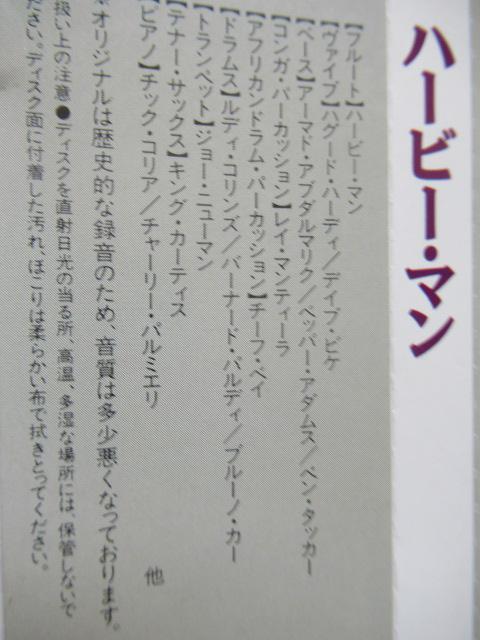 ハービー・マン
【フルート】ハービー・マン
【ヴァイブ】ハグード・ハーディ／デイブ・ピケ
【ベース】アーマド・アブダルマリク／ペッパー・アダムス／ベン・タッカー
【コンガ・パーカッション】レイ・マンティーラ
【アフリカンドラム・パーカッション】チーフ・ベイ
【ドラムス】ルディ・コリンズ／バーナード・パルディ／ブルーノ・カー
【トランペット】ジョー・ニューマン
【テナー・サックス】キング・カーティス
【ピアノ】チック・コリア／チャーリー・パルミエリ 他
※オリジナルは歴史的な録音のため、音質は多少悪くなっております。
扱い上の注意●ディスクを直射日光の当る所、高温、多湿な場所には、保管しないで
ださい。ディスク面に付着した汚れ、ほこりは柔らかい布で拭きとってください。